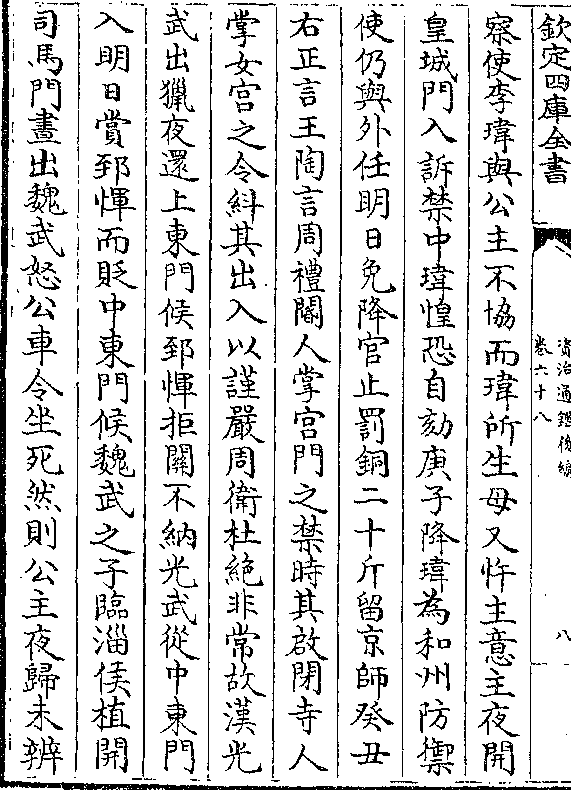 欽定四庫全書
資治通鑑後編
卷六十八
八
察使李瑋與公主不協而瑋所生母又忤主意主夜開
皇城門入訴禁中瑋惶恐自劾庚子降瑋為和州防禦
使仍與外任明日免降官止罰銅二十斤留京師癸丑
右正言王陶言周禮閽人掌宮門之禁時其啟閉寺人
掌女宮之令糾其出入以謹嚴周衛杜絕非常故漢光
武出獵夜還上東門候郅惲拒關不納光武從中東門
入明日賞郅惲而貶中東門候魏武之子臨淄侯植開
司馬門晝出魏武怒公車令坐死然則公主夜歸未辨